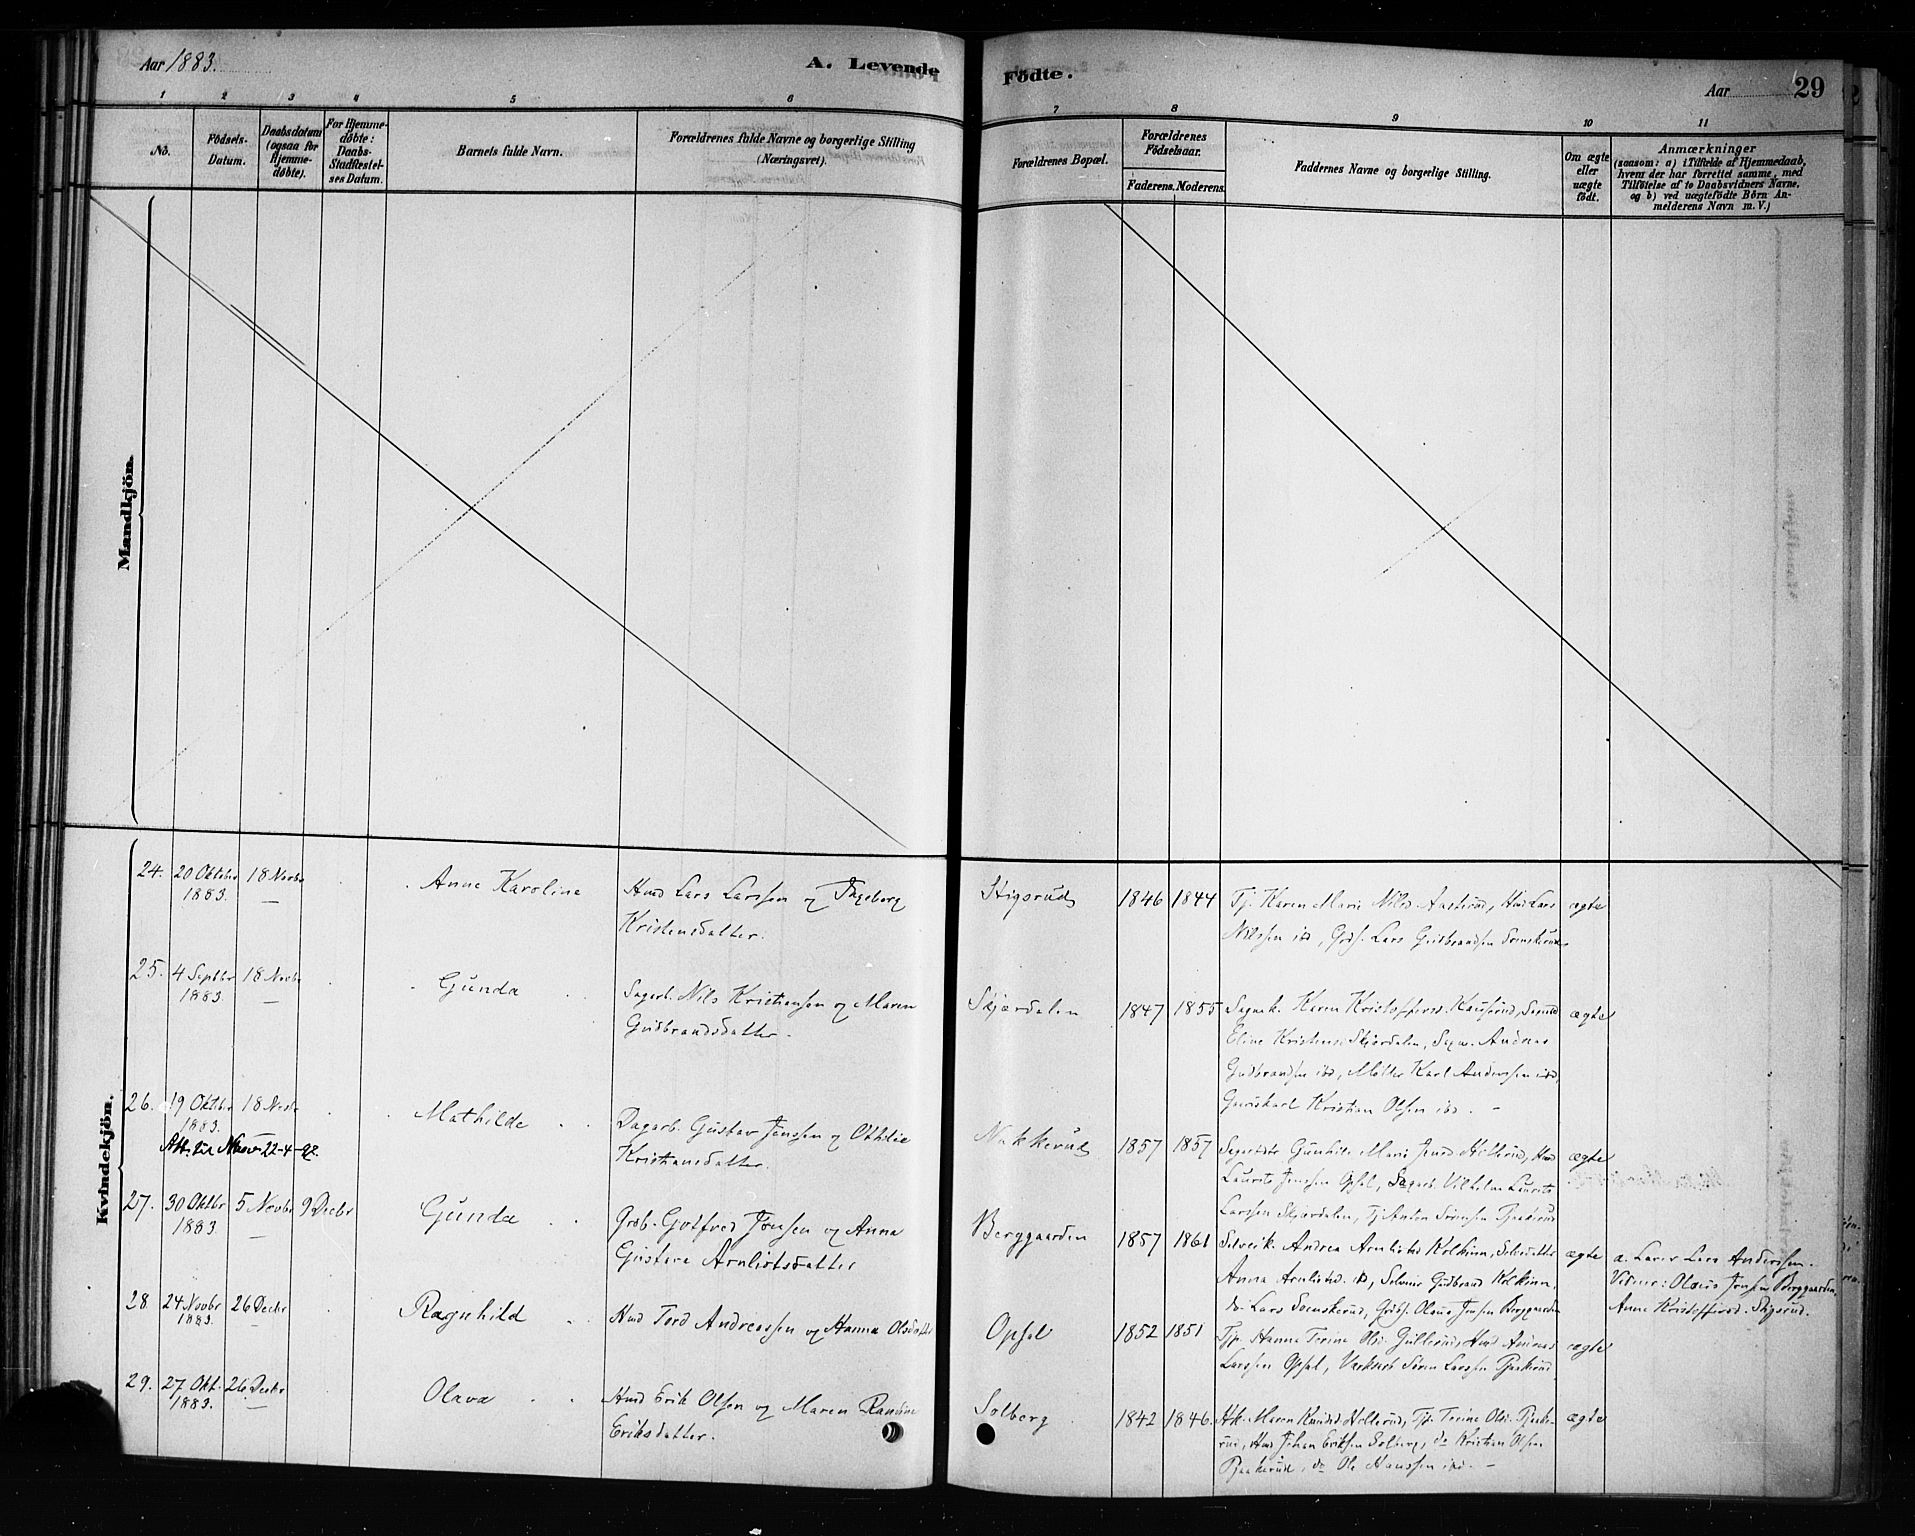 Aar 1883.
A. Levende
Fødte.
Aar 29
1 2 3 4 5 6 7 8 9 10 11
No.
Fødsels-Datum.
Daabsdatum (ogsaa for Hjemme-døbte).
For Hjemme-døbte: Daabs-Stadfæstel-ses Datum.
Barnets fulde Navn.
Forældrenes fulde Navne og borgerlige Stilling (Næringsvei).
Forældrenes Bopæl.
Forældrenes Fødselsaar.
Faderens. Moderens.
Faddernes Navne og borgerlige Stilling.
Om ægte eller uægte født.
Anmærkninger
(saasom: a) i Tilfælde af Hjemmedaab,
hvem der har forrettet samme, med
Tilføielse af to Daabsvidners Navne.
og b) ved uægtefødte Børn An-
melderens Navn m. V.)
Mandkjön.
Kvindekjön.
24. 20 Oktbr 1883. 18 Novbr Anne Karoline
Hmd Lars Larssen og Ingeborg
Kristensdatter.
Stigsrud 1846 1844
Tj. Karen Marie Nilsd. Aasterud, Hmd Lars
Nilssen ibd, Grds. Lars Gudbrandsen Svenskerud
ægte
25. 4 Septbr 1883. 18 Novbr Gunda
Sagarb. Nils Kristiansen og Maren
Gudbrandsdatter.
Skjærdalen 1847 1855
Karen Kristoffersd.
Eline Skjærdalen, Andreas
Gudbrandsen ibd, Møller Karl Anderssen ibd,
Kristian Olsen ibd. –
ægte
26. 19 Oktbr 1883. 18 Novbr Mathilde
Dagarb. Gustav Jenssen og Othilie
Kristiansdatter.
Att. 22-4-92.
Nakkerud 1857 1857
Gunhild Marie Hillerud, Hmd
Laurits Jenssen Opsal, Sagarb. Vilhelm Laurits
Larssen Skjærdalen, Tj Anton
ægte
27. 30 Oktbr 1883. 5 Novbr 9 Decbr Gunda
Grdb. Gotfred Jonsen og Anna
Gustava Arnliotsdatter
Berggaarden 1857 1861
Andrea Arnliotsd
Anna Arnliotsd. ibd, Gudbrand
do Lars Svenskerud, Grdbs. Olaus Jonsen Berggaarden
ægte
a. Lærer Lars Anderssen.
Vidner: Olaus Jonsen Berggaarden,
Anne Kristoffersd. Stigsrud.
28 24 Novbr 1883. 26 Decbr Ragnhild
Hmd Tord Andreassen og Hanna Olsdatter
Opsal 1852 1851
Tjp. Hanna Terine Olsd. Gullerud, Hmd Andreas
Larssen Opsal, Søren Larssen
ægte
29. 27 Okt. 1883. 26 Decbr Olava
Hmd Erik Olsen og Maren Randine
Eriksdatter.
Solberg 1842 1846
Hk. Maren Knudsd. Hillerud, Tjp. Terine Olsd.
Hmd Johan Eriksen Solberg, do Kristian Olsen
do Ole Hanssen ibd. –
ægte